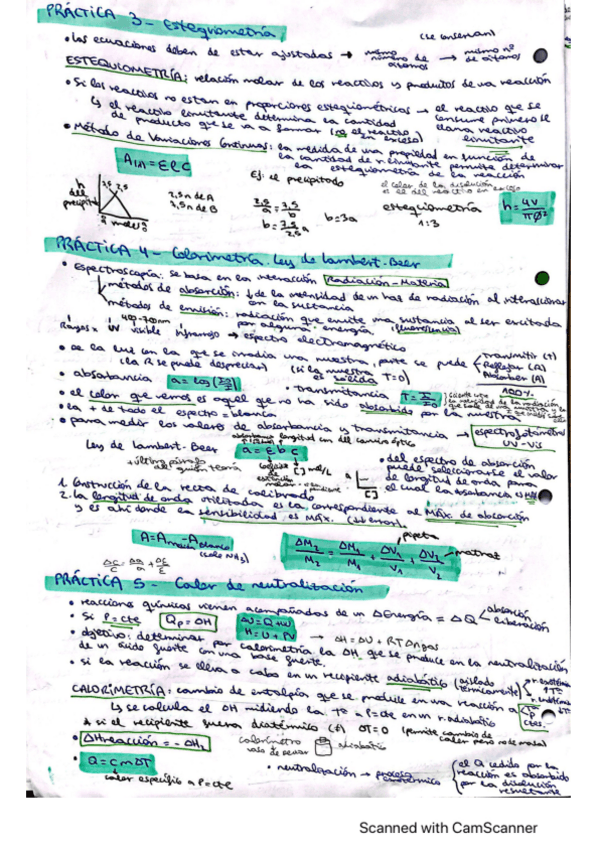 PRÁCTICA 3 - Estequiometría
(se conservan)
• las ecuaciones deben de estar ajustadas → mismo número de átomos → mismo nº de átomos
ESTEQUIOMETRÍA: relación molar de los reactivos y productos de una reacción
• Si los reactivos no estan en proporciones estequiométricas → el reactivo que se consume primero se llama reactivo limitante
↳ el reactivo limitante determina la cantidad de producto que se va a formar (el reactivo en exceso)
• Método de Variaciones Continuas: la medida de una propiedad en función de la cantidad de r. limitante permite determinar la estequiometría de la reacción
A(λ) = εlc
Ej: el precipitado
el color de la disolución es el del reactivo en exceso
h del precipitado
7,5 2,5
2,5 n de A
7,5 n de B
b=3a
estequiometría
1:3
h = 4V / πØ²
PRÁCTICA 4 - Colorimetría. Ley de Lambert-Beer
• Espectroscopía: se basa en la interacción Radiación-Materia
métodos de absorción: ↓ de la intensidad de un haz de radiación al interaccionar con la sustancia
métodos de emisión: radiación que emite una sustancia al ser excitada por alguna energía (fluorescencia)
400-700nm
Rayos x UV visible Infrarrojo → espectro electromagnético
• De la luz con la que se irradia una muestra, parte se puede
Transmitir (T)
Reflejar (R)
Absorber (A)
100%
(la R se puede despreciar)
(si la muestra es sólida T=0)
• absorbancia
• transmitancia
• el color que vemos es aquel que no ha sido absorbido por la muestra
• la + de todo el espectro = blanca
• para medir los valores de absorbancia y transmitancia → espectrofotómetro UV-Vis
Ley de Lambert-Beer a = ε b c
[ ] mol/L
• del espectro de absorción puede seleccionarse el valor de longitud de onda para el cual la absorbancia es MÁX
1. Construcción de la recta de calibrado
2. La longitud de onda utilizada es la correspondiente al MÁX. de absorción y es ahí donde la sensibilidad es MÁX. (↓ error)
A = A muestra - A blanco
(solo NH₃)
pipeta
ΔM₂/M₂ = ΔM₁/M₁ + ΔV₁/V₁ + ΔV₂/V₂ → matraz
ΔC/C = Δa/a + Δε/ε
PRÁCTICA 5 - Calor de neutralización
• reacciones químicas vienen acompañadas de un ΔEnergía = ΔQ
absorción
liberación
• Si P=cte Qp = ΔH
ΔU = Q + W
H = U + PV
→ ΔH = ΔU + RTΔngas
• objetivo: determinar por calorimetría la ΔH que se produce en la neutralización de un ácido fuerte con una base fuerte.
• si la reacción se lleva a cabo en un recipiente adiabático (aislado térmicamente)
CALORIMETRÍA: cambio de entalpía que se produce en una reacción a T y P ctes.
↳ se calcula el ΔH midiendo la Tª a P=cte en un r. adiabático
si el recipiente fuera diatérmico ΔT=0 (permite cambio de calor pero no de masa)
• ΔHreacción = -ΔH₂
calorímetro
vaso de dewar
adiabático
• Q = C m ΔT
calor específico a P=cte
• neutralización → proceso exotérmico
el Q cedido por la reacción es absorbido por la disolución resultante
Scanned with CamScanner